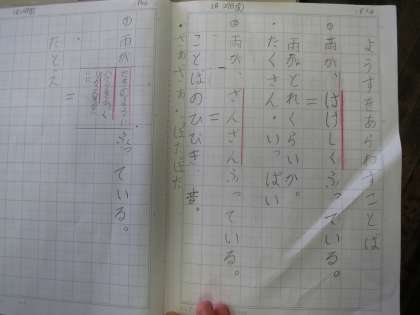 ようすをあらわすことば
① 雨が、はげしくふっている。
=
雨がどれくらいか。
・たくさん・いっぱい
② 雨が、ざんざんふっている。
=
ことばのひびき・音。
・ざあざあ・ぽたぽた
③ 雨が
ふっている。
=
たとえ